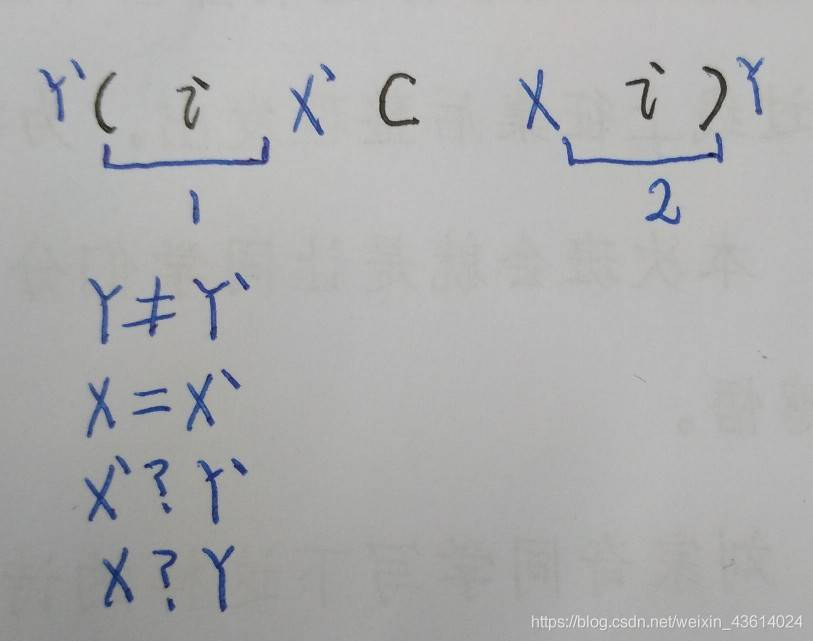 Y`( i X` C X i ) Y
1 2
Y≠Y`
X=X`
X`?Y`
X?Y
本次班会就是让同学们分
https://blog.csdn.net/weixin_43614024